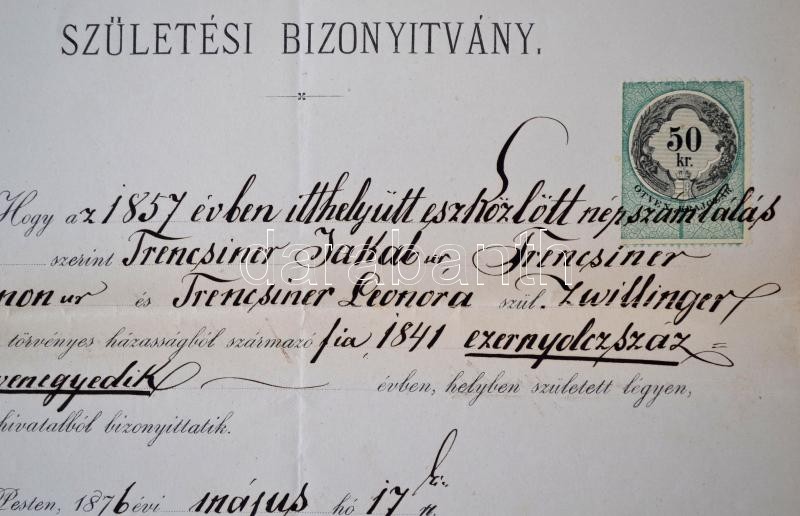 SZÜLETÉSI BIZONYITVÁNY.
50
kr.
Hogy az 1857 évben itthelyütt eszközlött népszámlálás
szerint Trencsiner Jakab ur, Trencsiner
non ur és Trencsiner Leonora szül. Zwillinger
törvényes házasságból származó fia, 1841 ezernyolczszáz=
venegyedik évben, helyben született légyen,
hivatalból bizonyittatik.
Pesten, 1876 évi május hó 17
n.
darabanth